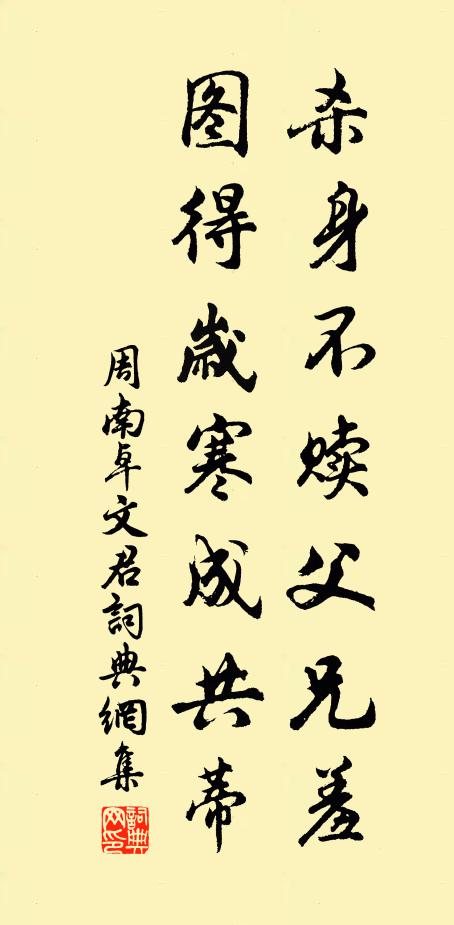 杀身不赎父兄羞
图得歳寒成共蒂
周南卓文君詞典網集
詞典網印